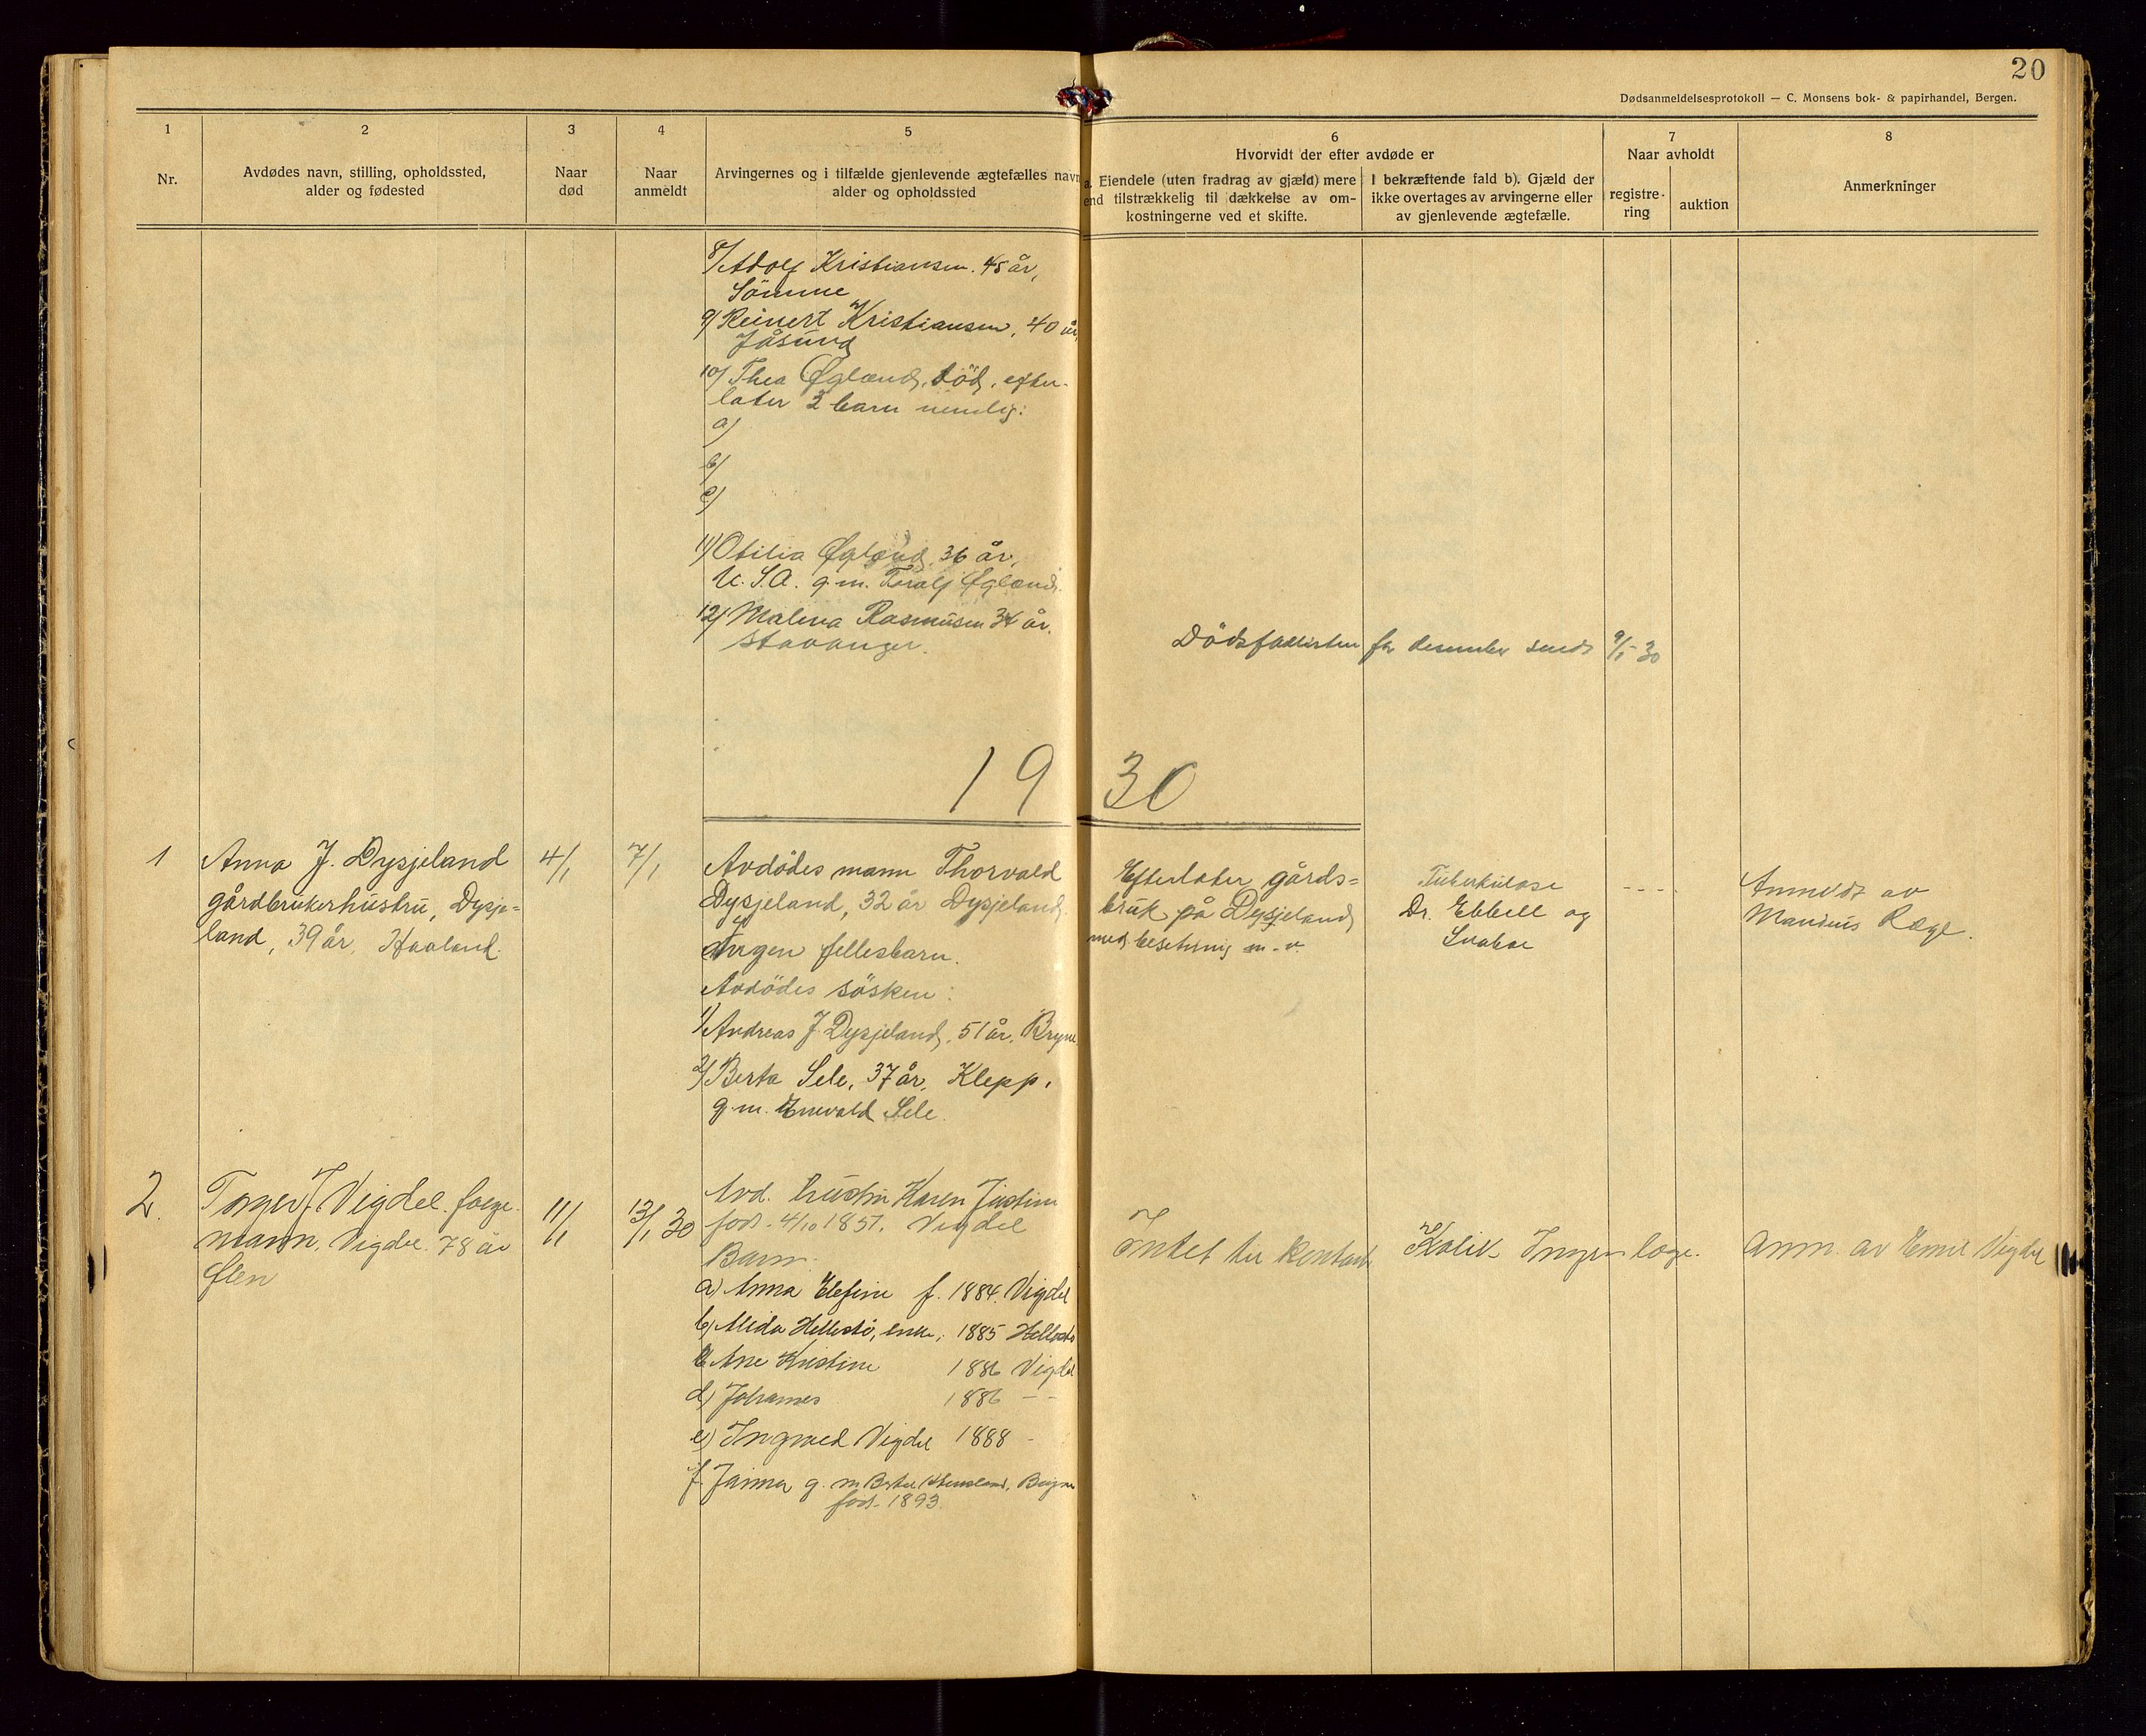 20
Dødsanmeldelsesprotokoll — C. Monsens bok- & papirhandel, Bergen.
1
Nr.
2
Avdødes navn, stilling, opholdssted,
alder og fødested
3
Naar
død
4
Naar
anmeldt
5
Arvingernes og i tilfælde gjenlevende ægtefælles navn
alder og opholdssted
6
Hvorvidt der efter avdøde er
a. Eiendele (uten fradrag av gjæld) mere
end tilstrækkelig til dækkelse av om-
kostningerne ved et skifte.
I bekræftende fald b). Gjæld der
ikke overtages av arvingerne eller
av gjenlevende ægtefælle.
7
Naar avholdt
registre-
ring
auktion
8
Anmerkninger
8/ Adolf Kristiansen. 45 år,
Sömme
9/ Reinert Kristiansen, 40 år,
Jåsund
10/ Thea Øgland, död, efter-
later 3 barn nemlig:
a/
b/
c/
11/ Otilia Øgland, 36 år,
U.S.A. g.m. Toralf Øgland.
12/ Malena Rasmusen 34 år.
Stavanger.
Dödsfallisten for desember sendt 9/1-30
1930
1
Anna J. Dysjeland
gårdbrukerhustru, Dysje-
land, 39 år, Haaland.
4/1
7/1
Avdödes mann Thorvald
Dysjeland, 32 år Dysjeland.
Ingen fellesbarn.
Avdödes sösken:
1/ Andreas J. Dysjeland, 51 år. Bryne
2/ Berta Sele, 37 år, Klepp,
g.m. Enevald Sele.
Efterlater gårds=
bruk på Dysjeland
med besetning m.v.
Tuberkulose
Dr. Ebbell og
Svaboe
----
Anmeldt av
Mandius Ræge.
2.
Torger J Vigdel. forge.
mann. Vigdel. 78 år
Ølen
11/1
13/1 30
Avd. hustru Karen Justine
född. 4/10 1851. Vigdel
Barn:
a) Anna Elefine f. 1884. Vigdel
b) Alida Hellestö, enke, 1885 Hellestö
c Ane Kristine 1886 Vigdel
d) Johannes 1886 - -
e) Ingvald Vigdel 1888 -
f. Janna g. m
född. 1893.
Intet til
Kolik Ingen læge.
Anm. av Emil Vigdel